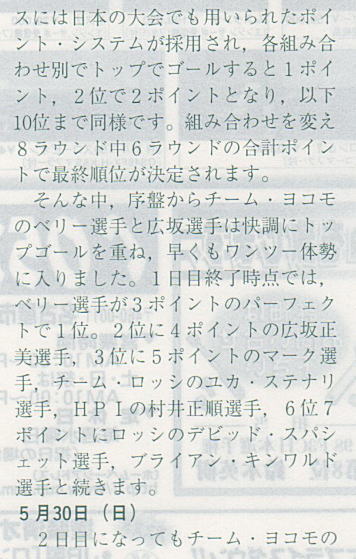 スには日本の大会でも用いられたポイ
ント・システムが採用され，各組み合
わせ別でトップでゴールすると１ポイ
ント，２位で２ポイントとなり，以下
10位まで同様です。組み合わせを変え
８ラウンド中６ラウンドの合計ポイン
トで最終順位が決定されます。
　そんな中，序盤からチーム・ヨコモ
のベリー選手と広坂選手は快調にトッ
プゴールを重ね，早くもワンツー体勢
に入りました。１日目終了時点では，
ベリー選手が３ポイントのパーフェク
トで１位。２位に４ポイントの広坂正
美選手，３位に５ポイントのマーク選
手，チーム・ロッシのユカ・ステナリ
選手，ＨＰＩの村井正順選手，６位７
ポイントにロッシのデビッド・スパシ
ェット選手，ブライアン・キンワルド
選手と続きます。
５月30日（日）
　２日目になってもチーム・ヨコモの